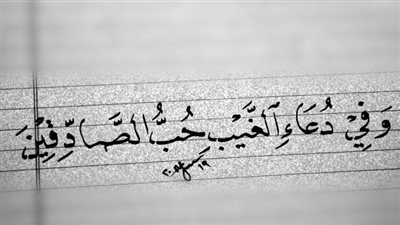 وَفِيْ دُعَاءِ الغَيْبِ حُبُّ الصَّادِّقِيْنَ